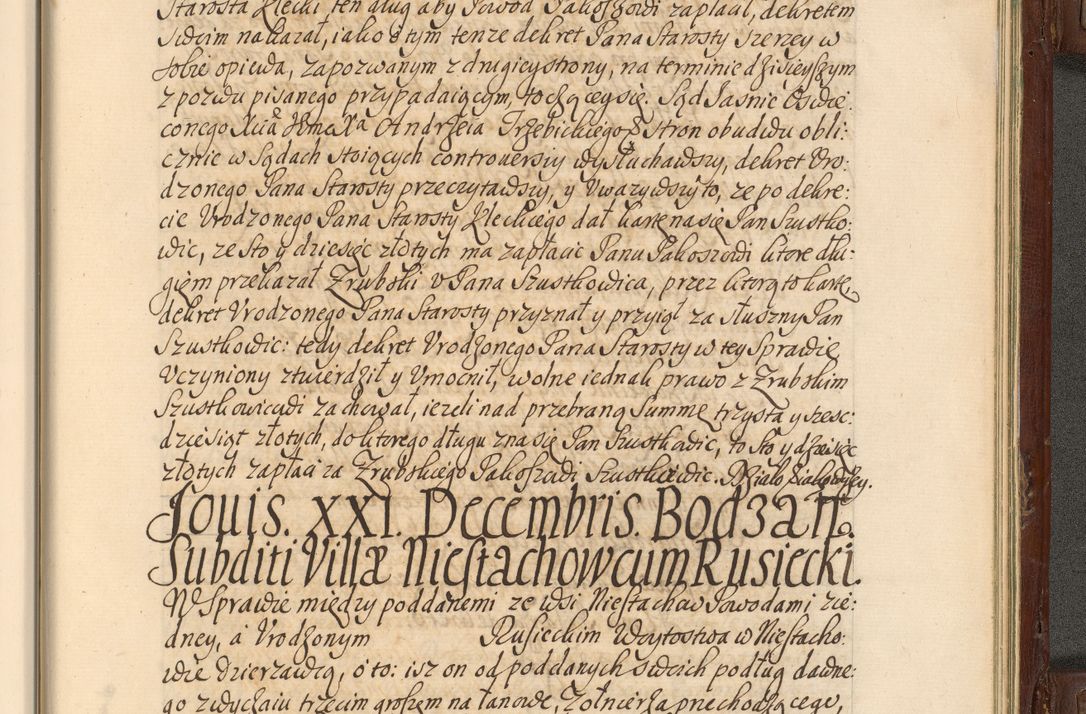 Starosta Klecki ten dług aby Powod Pakoszowi zapłacił, dekretem
swoim nakazał, iako o tym tenze dekret Pana Starosty szerzey w
sobie opiewa, zapozwanym z drugiey strony, na terminie dzisieyszym
z pozwu pisanego przypadaiącym, toczącey się. Sąd Jasnie Oswie:
conego Xcia Jmci Xa Andrzeia Trzebickiego Stron obudwu obli:
cznie w Sądach stoiących controwersiy wysłuchawszy, dekret Vro:
dzonego Pana Starosty przeczytawszy, y Vwazywszy to, ze po dekre:
cie Vrodzonego Pana Starosty Kleckiego dał kartę na się Pan Szustko:
wic, ze sto y dziesięc złotych ma zapłacic Panu Pakoszowi ktore dłu:
giem przekazał Zrubski v Pana Szustkowica, przez ktorą to kartę
dekret Vrodzonego Pana Starosty przyznał y przyiął za słuszny Pan
Szustkowic: tedy dekret Vrodzonego Pana Starosty w tey Sprawie
Vczyniony ztwierdził y Vmocnił, wolne iednak prawo z Zrubskim
Szustkowicowi zachował, iezeli nad przebraną Summę trzysta y szesc:
dziesiąt złotych, do ktorego długu zna się Pan Szustkowic, to sto y dziesięc
złotych zapłaci za Zrubskiego Pakoszowi Szustkowic.
Jouis. XXI. Decembris. Bodzati.
Subditi Villæ Niestachow cum Rusiecki.
W Sprawie między poddanemi ze wsi Niestachow Powodami zie:
dney, a Vrodzonym Rusieckim Woytostwa w Niestacho:
wie Dzierzawcą, o to: isz on od poddanych swoich podług dawne:
go zwyczaiu trzecim groszem na łanowe, Zołnierza przechodzącego,